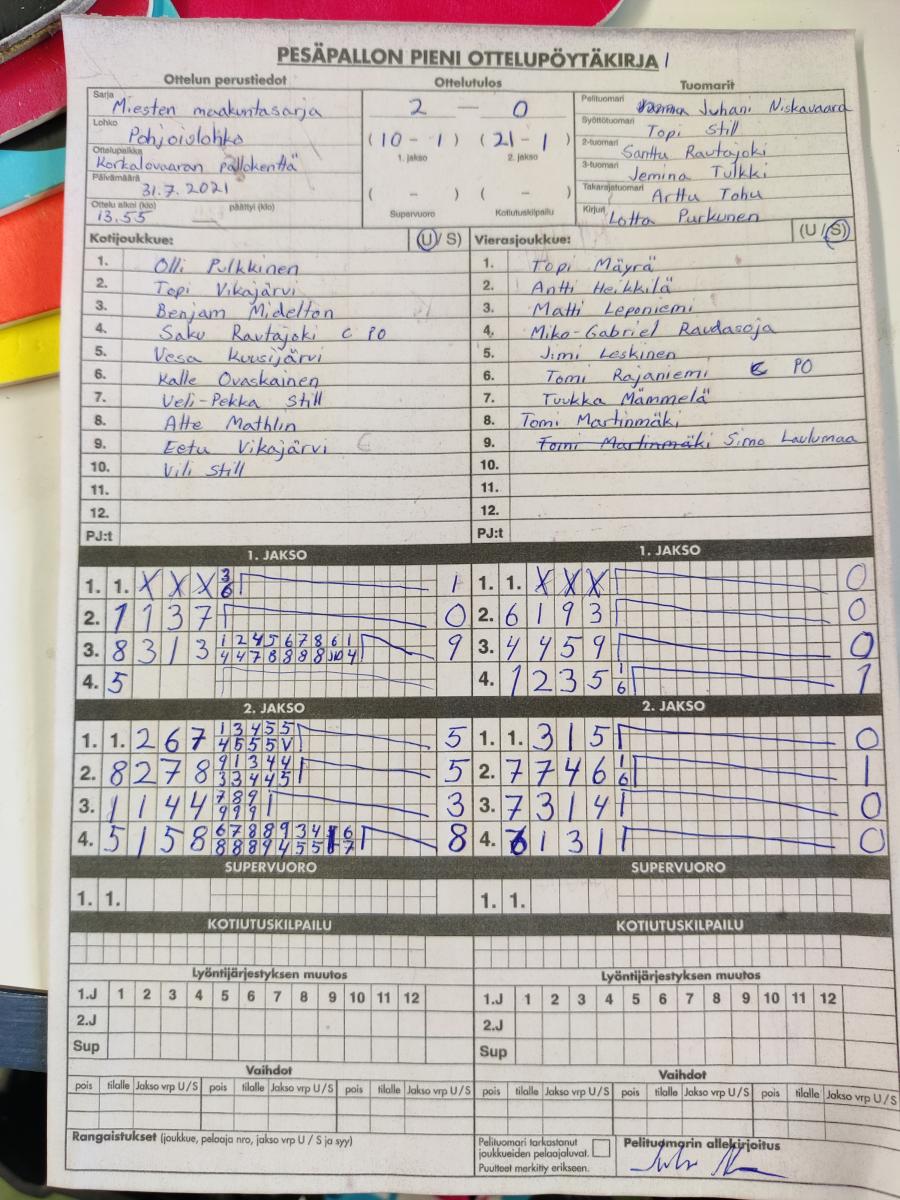 PESÄPALLON PIENI OTTELUPÖYTÄKIRJA
Ottelun perustiedot
Sarja Miesten maakuntasarja
Lohko Pohjoislohko
Ottelupaikka Korkalovaaran pallokenttä
Päivämäärä 31.7.2021
Ottelu alkoi (klo) 13.55 päättyi (klo)
Ottelutulos
2 — 0
(10 - 1) (21 - 1)
1. jakso 2. jakso
( - ) ( - )
Supervuoro Kotiutuskilpailu
Tuomarit
Pelituomari Juhani Niskavaara
Syöttötuomari Topi Still
2-tuomari Santtu Rautajoki
3-tuomari Jemina Tulkki
Takarajatuomari Arttu Tohu
Kirjuri Lotta Purkunen
Kotijoukkue: (U / S)
1. Olli Pulkkinen
2. Topi Vikajärvi
3. Benjam Midelton
4. Saku Rautajoki C PO
5. Vesa Kuusijärvi
6. Kalle Ovaskainen
7. Veli-Pekka Still
8. Atte Mathlin
9. Eetu Vikajärvi
10. Vili Still
11.
12.
PJ:t
Vierasjoukkue: (U / S)
1. Topi Mäyrä
2. Antti Heikkilä
3. Matti Leponiemi
4. Miko-Gabriel Raudasoja
5. Jimi Leskinen
6. Tomi Rajaniemi C PO
7. Tuukka Mämmelä
8. Tomi Martinmäki
9. Tomi Martinmäki Simo Laulumaa
10.
11.
12.
PJ:t
1. JAKSO
1. 1. X X X 3 1
6
2. 1 1 3 7 0
3. 8 3 1 3 1 2 4 5 6 7 8 6 1 9
4 4 7 8 8 8 8 10 4
4. 5
1. JAKSO
1. 1. X X X 0
2. 6 1 9 3 0
3. 4 4 5 9 0
4. 1 2 3 5 1 1
6
2. JAKSO
1. 1. 2 6 7 1 3 4 5 5 5
4 5 5 5 V
2. 8 2 7 8 9 1 3 4 4 5
3 3 4 4 5
3. 1 1 4 4 7 8 9 3
9 9 9
4. 5 1 5 8 6 7 8 8 9 3 4 6 8
8 8 8 9 4 5 5 7
2. JAKSO
1. 1. 3 1 5 0
2. 7 7 4 6 1 1
6
3. 7 3 1 4 0
4. 6 1 3 1 0
SUPERVUORO
1. 1.
SUPERVUORO
1. 1.
KOTIUTUSKILPAILU
KOTIUTUSKILPAILU
Lyöntijärjestyksen muutos
1.J 1 2 3 4 5 6 7 8 9 10 11 12
2.J
Sup
Lyöntijärjestyksen muutos
1.J 1 2 3 4 5 6 7 8 9 10 11 12
2.J
Sup
Vaihdot
pois tilalle Jakso vrp U / S pois tilalle Jakso vrp U / S pois tilalle Jakso vrp U / S
Vaihdot
pois tilalle Jakso vrp U / S pois tilalle Jakso vrp U / S pois tilalle Jakso vrp U / S
Rangaistukset (joukkue, pelaaja nro, jakso vrp U / S ja syy)
Pelituomari tarkastanut
joukkueiden pelaajaluvat.
Puutteet merkitty erikseen.
Pelituomarin allekirjoitus